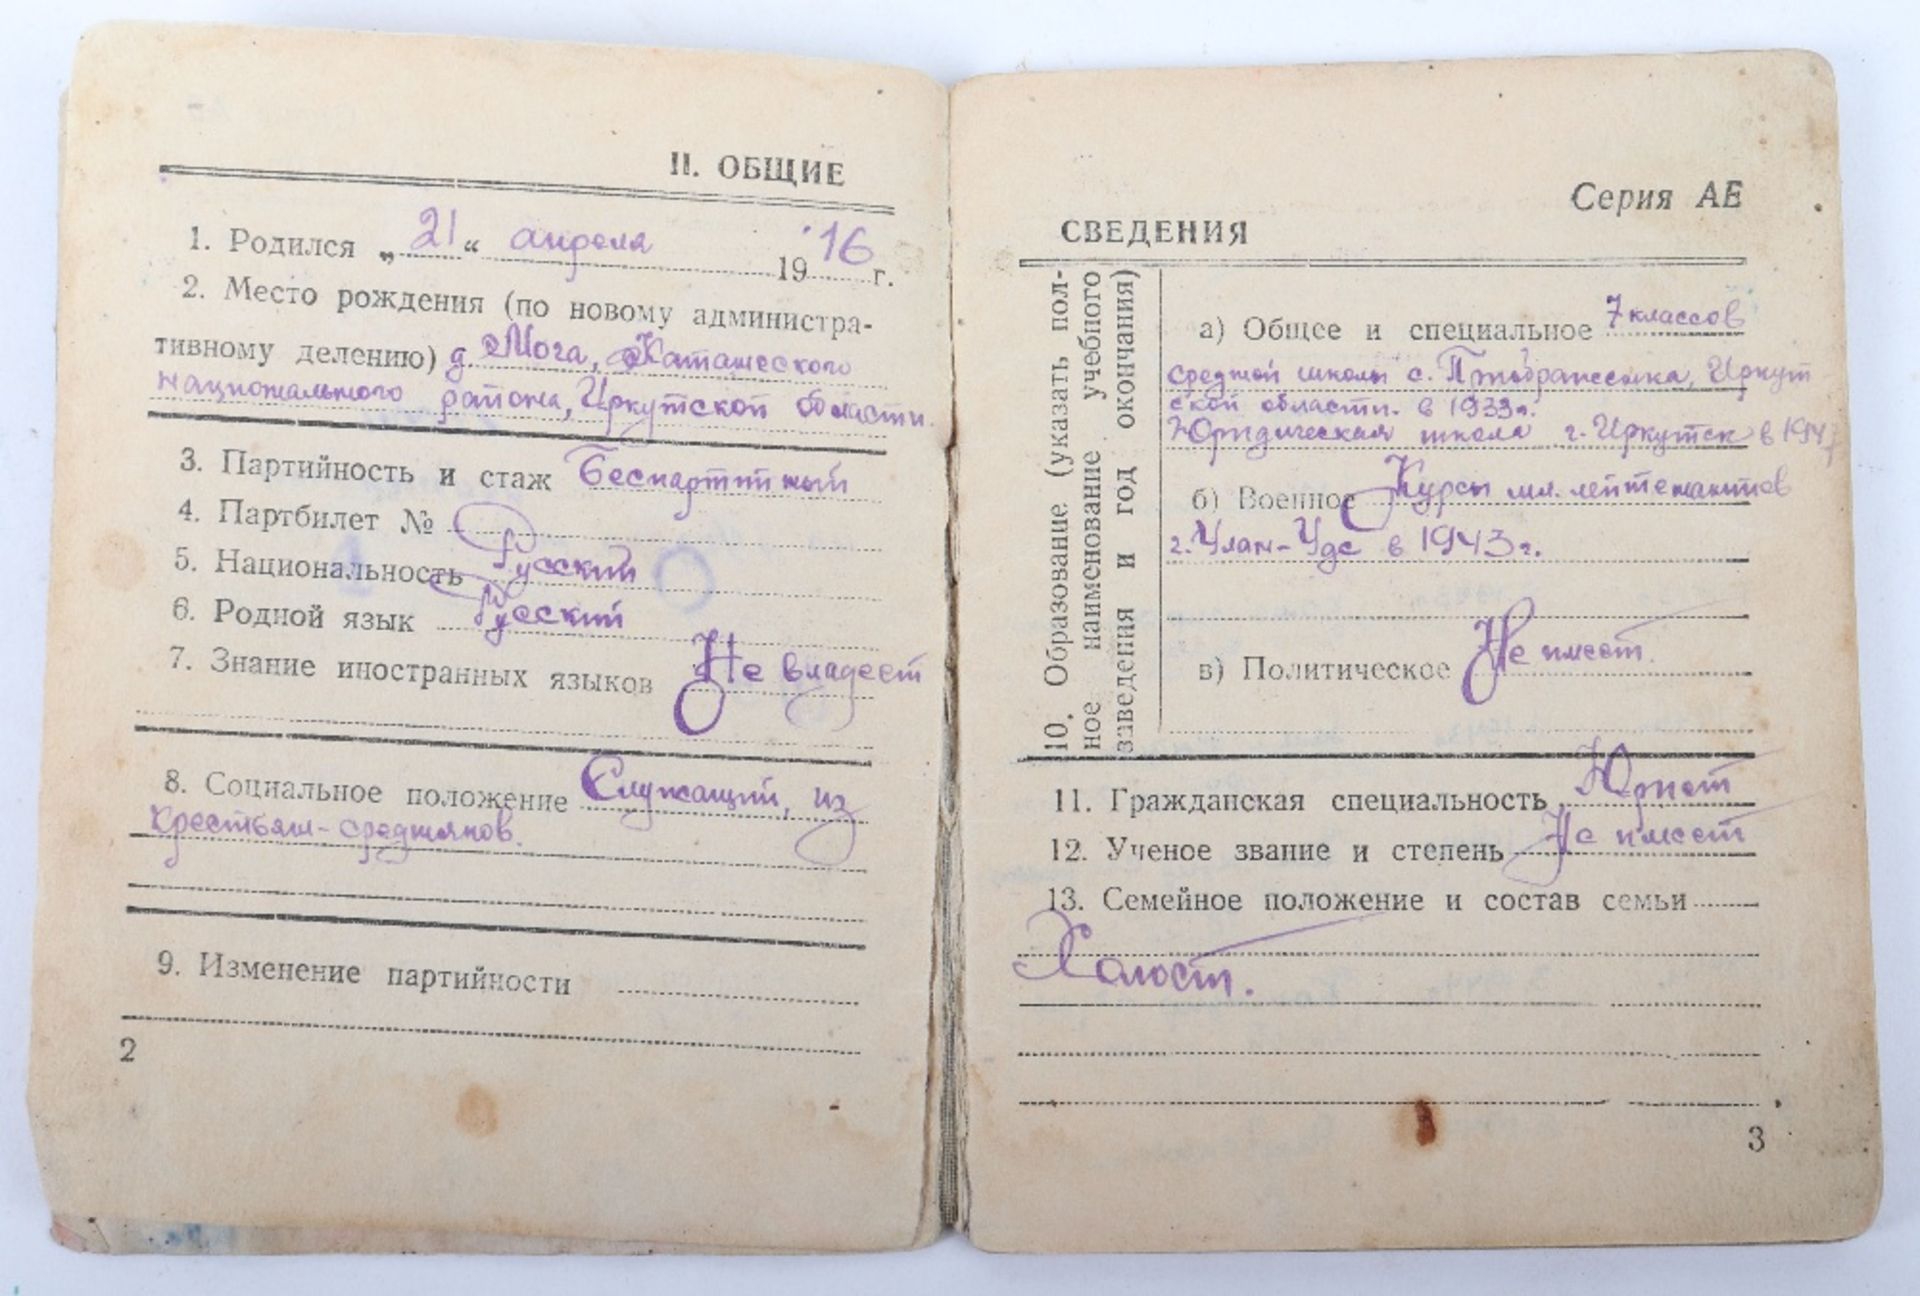 II. ОБЩИЕ
1. Родился „21“ апреля 1916 г.
2. Место рождения (по новому администра-
тивному делению) д. Мога, Каташеского
национального района, Иркутской области.
3. Партийность и стаж Беспартийный
4. Партбилет №
5. Национальность Русский
6. Родной язык Русский
7. Знание иностранных языков Не владеет
8. Социальное положение Служащий, из
крестьян-средняков.
9. Изменение партийности
2
Серия АЕ
СВЕДЕНИЯ
10. Образование (указать пол-
ное наименование учебного
заведения и год окончания)
а) Общее и специальное 7 классов
средней школы с. Иркут
ской области. в 1933г.
Юридическая школа г. Иркутск в
б) Военное Курсы мл. лейтенантов
г. Улан-Уде в 1943г.
в) Политическое Не имеет.
11. Гражданская специальность Юрист
12. Ученое звание и степень Не имеет
13. Семейное положение и состав семьи
Холост.
3